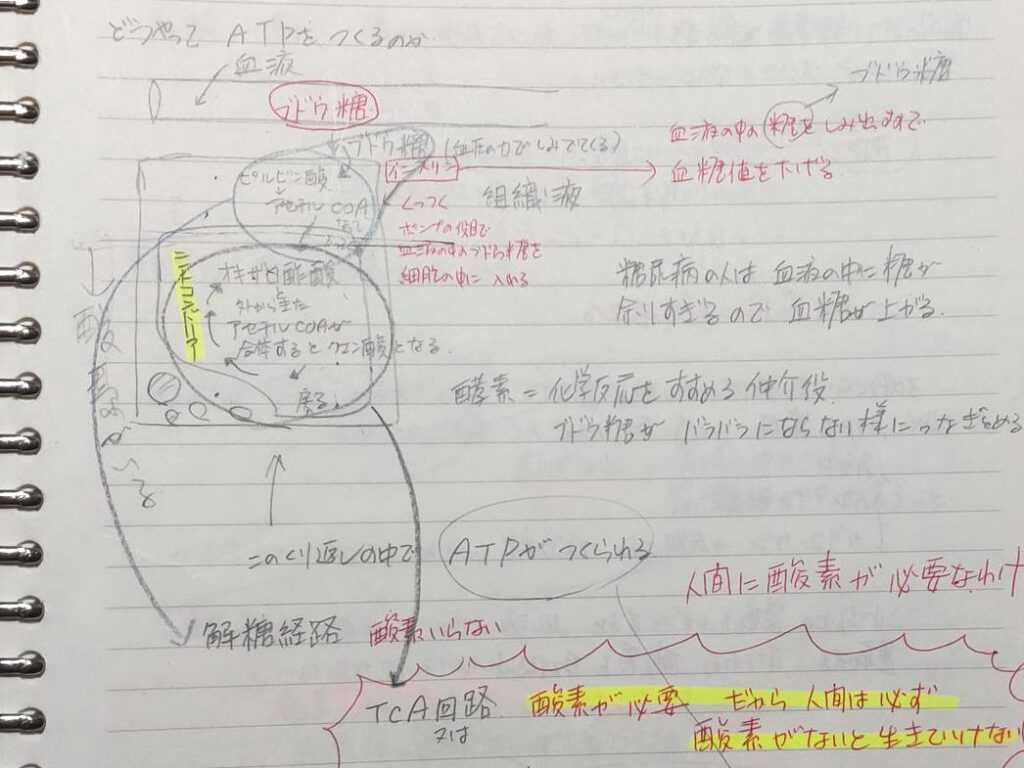 どうやって ATPを つくるのか
血液
ブドウ糖
ブドウ糖
血液の中の糖をしみ出すで
血糖値を下げる
ブドウ糖 (血液の力でしみでてくる)
インスリン
組織液
くっつく
ポンプの役目で
血液の中のブドウ糖を
細胞の中に入れる
ピルビン酸
アセチルCOA
ミトコンドリア
オキザロ酢酸
外から来た
アセチルCOAが
合体するとクエン酸となる.
戻る
糖尿病の人は 血液の中に糖が
余りすぎるので 血糖が上がる.
酵素 = 化学反応をすすめる仲介役.
ブドウ糖が バラバラにならない様につなぎ止める
このくり返しの中で ATPが つくられる
人間に酸素が必要なわけ
解糖経路 酸素いらない
TCA回路 酸素が必要 だから 人間は必ず
又は
酸素がないと生きていけない